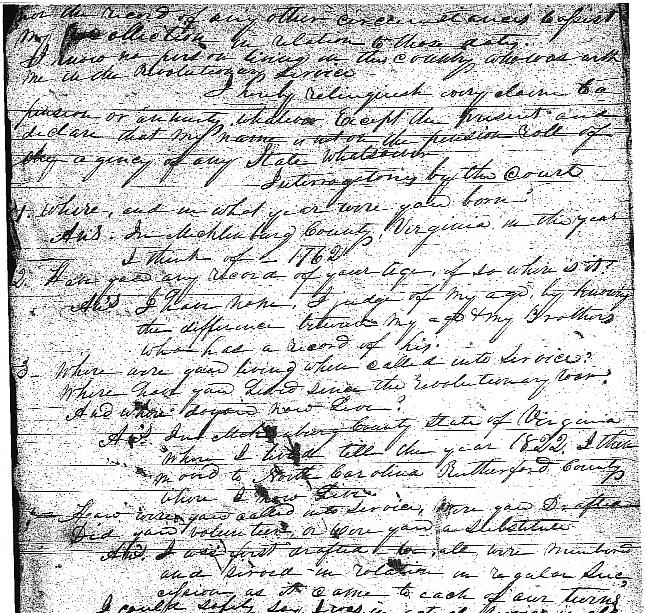 nor the record of any other circumstances to assist
my recollection in relation to those dates.
I know no person living in this county who was with
me in the Revolutionary Service
I hereby relinquish every claim to a
pension or annuity whatever except the present and
declare that my name is not on the pension roll of
the agency of any State whatsoever
Interrogatories by the Court
1. Where, and in what year were you born?
Ans. In Mecklenburg County Virginia in the year
I think of 1762
2. Have you any record of your age, if so where is it?
Ans I have none, I judge of my age by knowing
the difference between my age & my Brothers
who has a record of his.
3 Where were you living when called into service?
Where have you lived since the revolutionary war?
And where do you now live?
Ans. In Mecklenburg County State of Virginia
where I lived till the year 1822. I then
moved to North Carolina Rutherford County
where I now live
How were you called into service, were you Drafted
Did you volunteer or were you a substitute
Ans. I was first drafted
and served in rotation in regular suc
cession as it came to each of our turns
I could safely say I was in